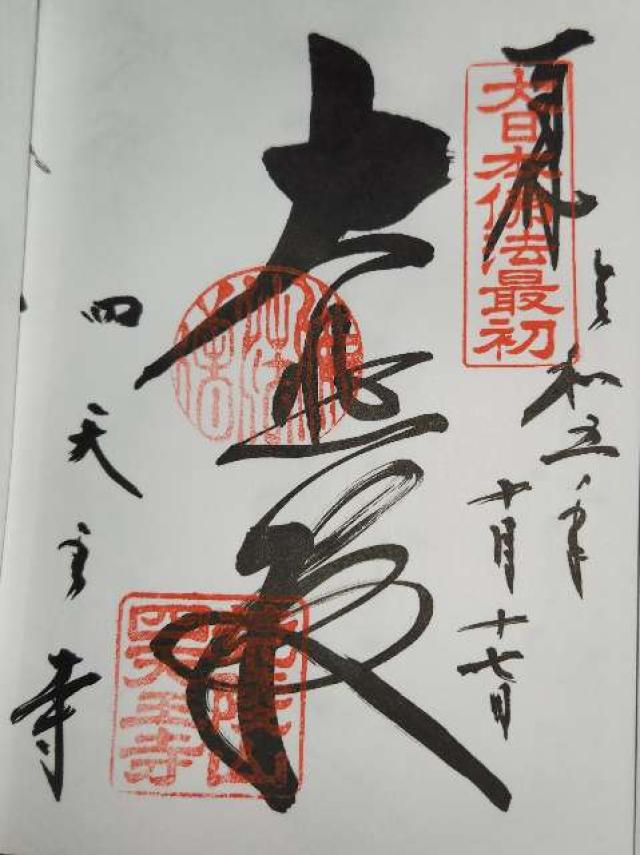 奉拝
大日本佛法最初
令和五年
十月十七日
大悲殿
四天王寺
荒陵山
四天王寺